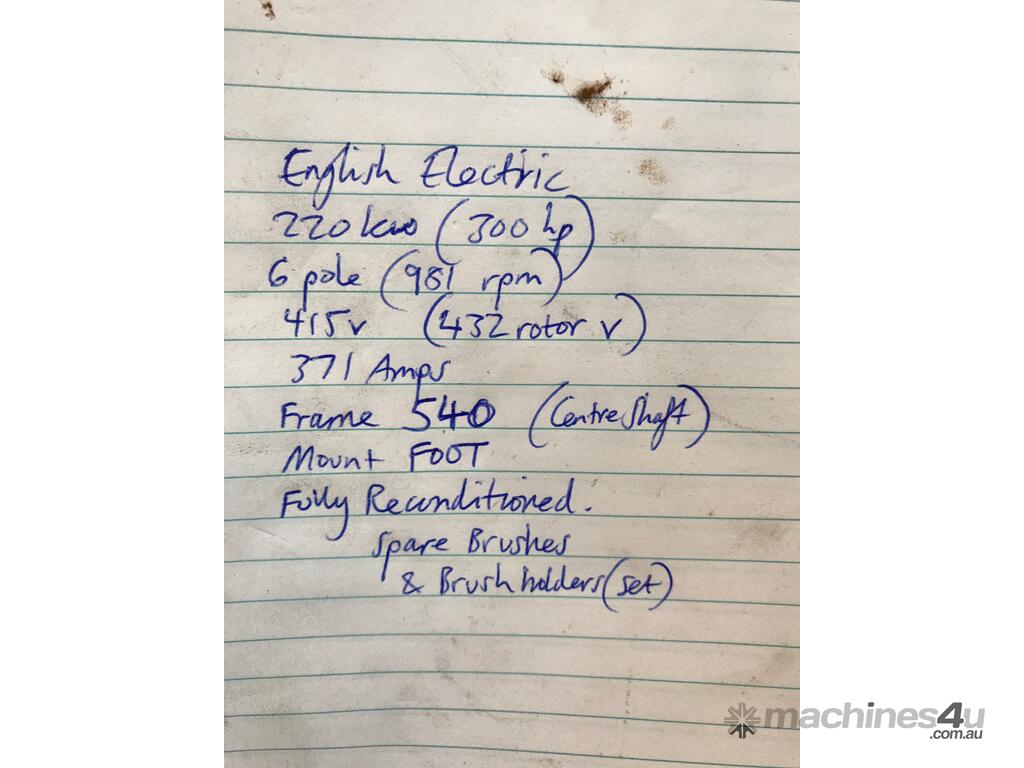 English Electric
220 kw (300 hp)
6 pole (981 rpm)
415v (432 rotor v)
371 Amps
Frame 540 (Centre shaft)
Mount FOOT
Fully Reconditioned.
Spare Brushes
& Brush holders (set)
machines4u
.com.au